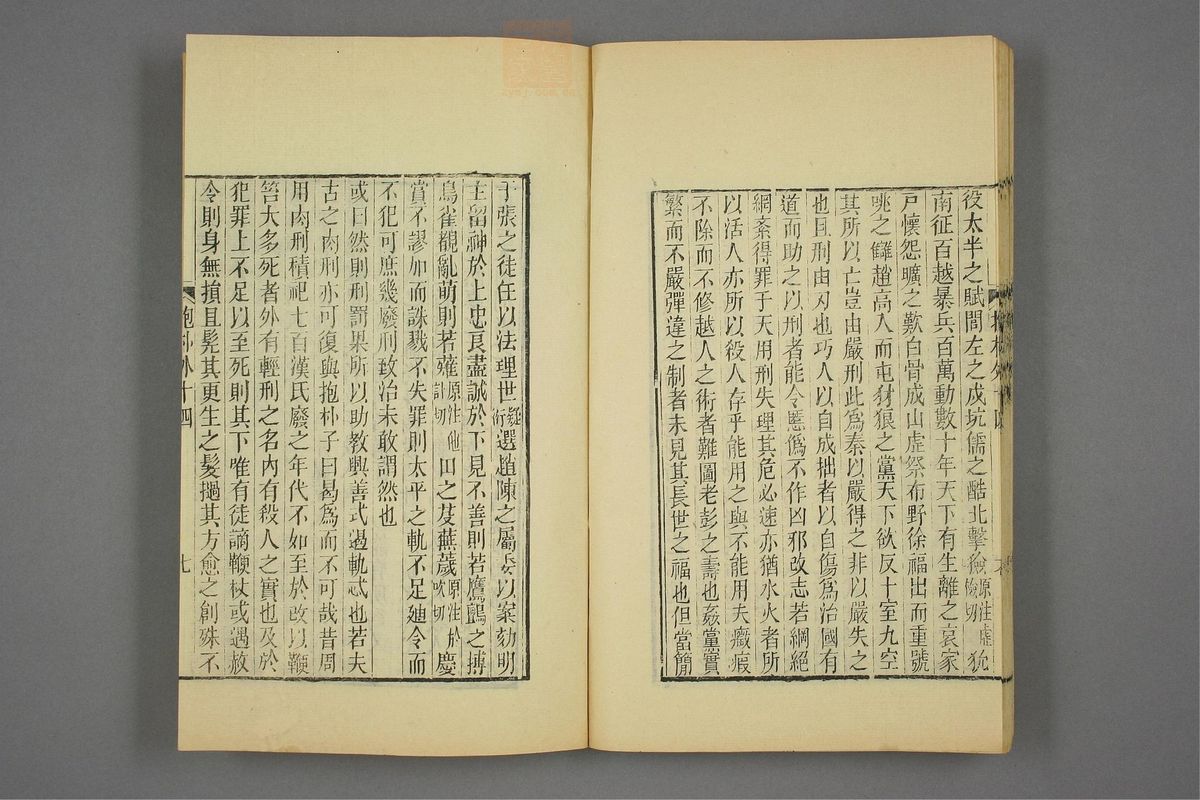 役太半之賦閭左之戍坑儒之酷北擊獫原注虛險切狁
南征百越暴兵百萬動數十年天下有生離之哀家
戸懷怨曠之歎白骨成山虛祭布野徐福出而重號
咷之讎趙高入而屯豺狼之黨天下欲反十室九空
其所以亡豈由嚴刑此爲秦以嚴得之非以嚴失之
也且刑由刃也巧人以自成拙者以自傷爲治國有
道而助之以刑者能令慝僞不作凶邪改志若綱絕
網紊得罪于天用刑失理其危必速亦猶水火者所
以活人亦所以殺人存乎能用之與不能用夫癥瘕
不除而不修越人之術者難圖老彭之壽也姦黨實
繁而不嚴彈違之制者未見其長世之福也但當簡
于張之徒任以法理世疑術選趙陳之屬委以案劾明
主留神於上忠良盡誠於下見不善則若鷹鸇之搏
鳥雀觀亂萌則若薙原注他計切田之芟蕪薉原注於吠切慶
賞不謬加而誅戮不失罪則太平之軌不足廸令而
不犯可庶幾廢刑致治未敢謂然也
或曰然則刑罰果所以助教興善式遏軌忒也若夫
古之肉刑亦可復與抱朴子曰曷爲而不可哉昔周
用肉刑積祀七百漢氏廢之年代不如至於改以鞭
笞大多死者外有輕刑之名内有殺人之實也及於
犯罪上不足以至死則其下唯有徒謫鞭杖或遇赦
令則身無損且髠其更生之髮撾其方愈之創殊不
抱朴外十四
七